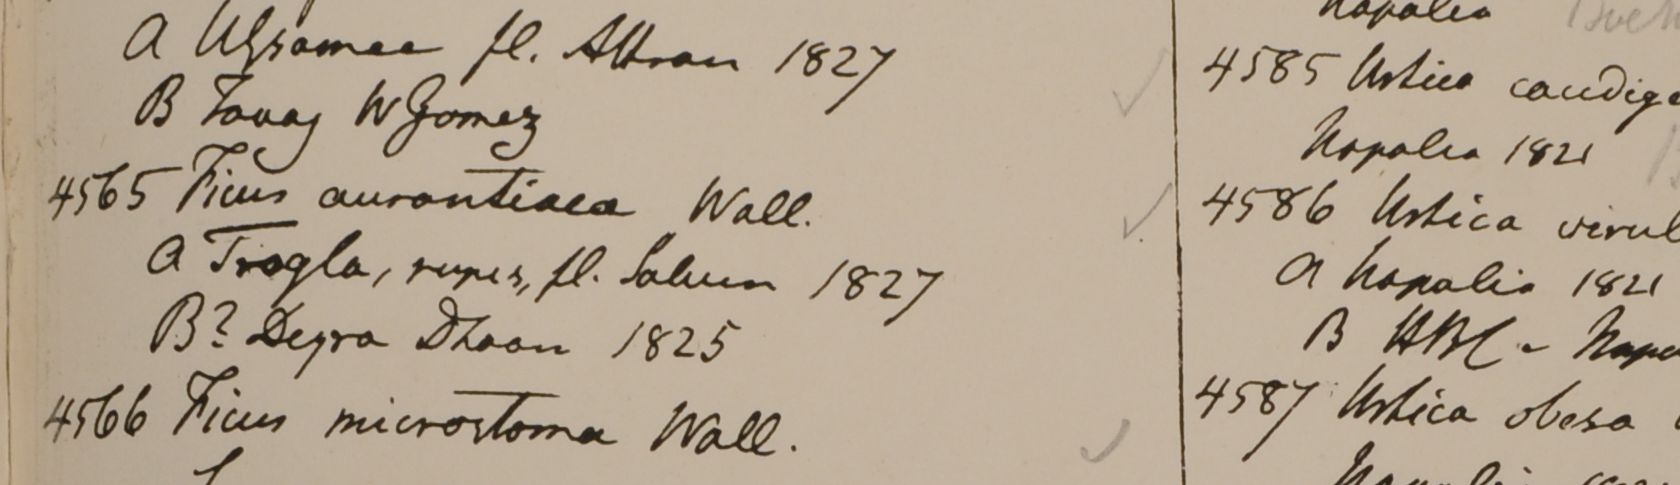 A Uhsamee fl. Attran 1827
B Tavoy WGomez
4565 Ficus aurantiaca Wall.
A Trogla, rupes, fl. Saluen 1827
B? Deyra Dhoon 1825
4566 Ficus microstoma Wall.
Napalia
4585 Urtica caudige
Napalia 1821
4586 Urtica virul
A Napalia 1821
B HBC - Napa
4587 Urtica obesa
Napalia